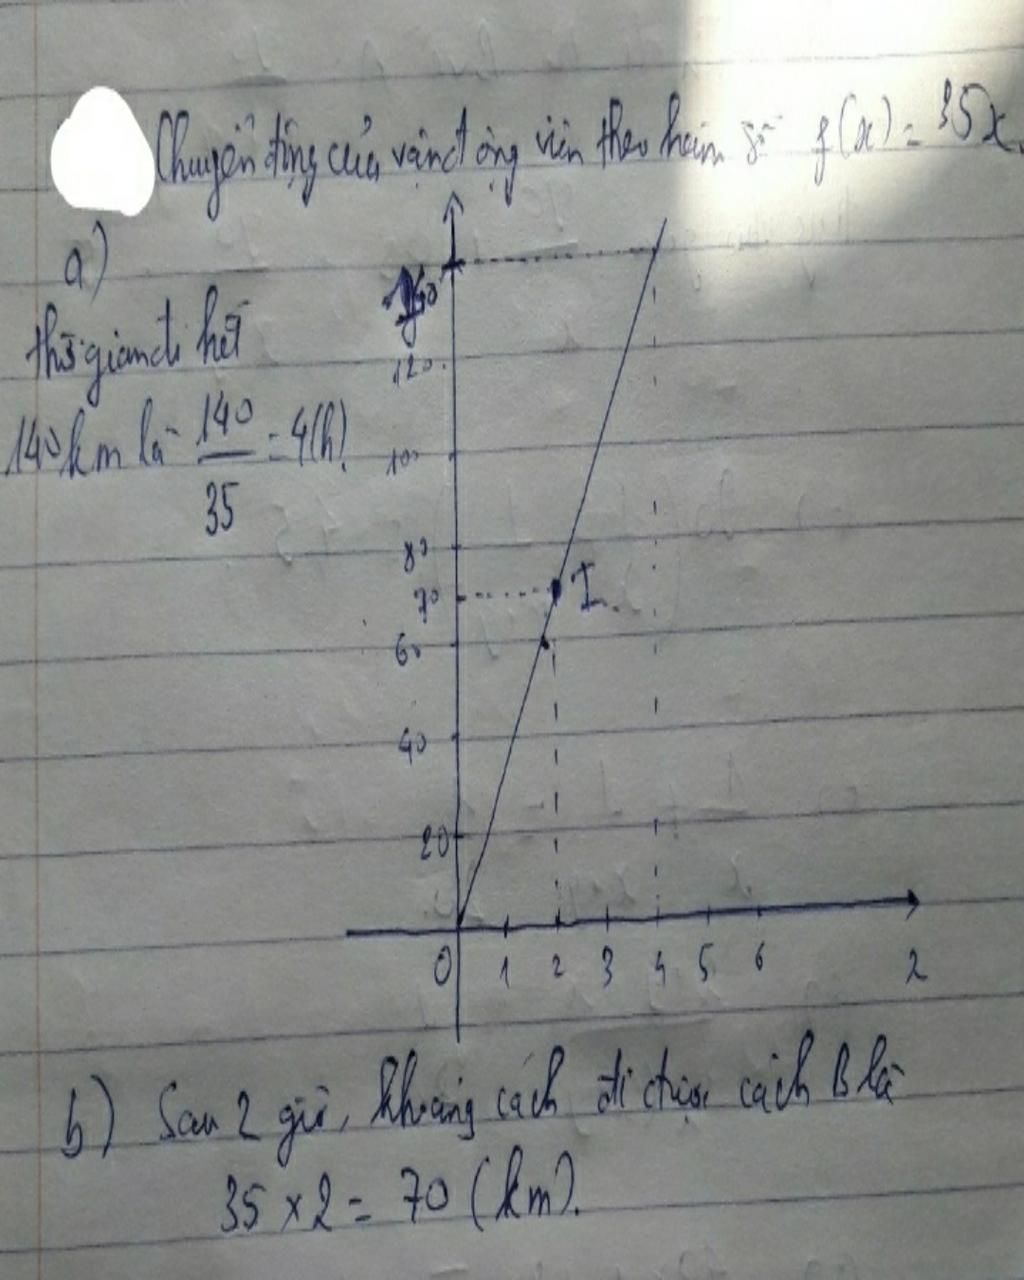 Chuyển động của vận động viên theo hàm số f(x) = 35x.
a)
thời gian đi hết
140 km là 140/35 = 4(h).
y
140
120
100
80
70 I
60
40
20
0 1 2 3 4 5 6 x
b) Sau 2 giờ, khoảng cách đi được cách B là
35 × 2 = 70 (km).